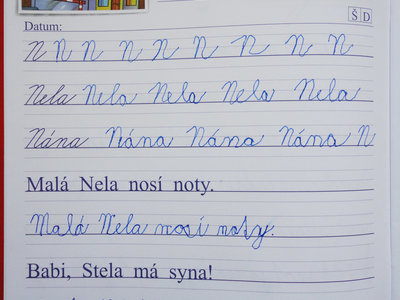 Š D
Datum:
N N N N N N N N N
Nela Nela Nela Nela Nela
Nána Nána Nána Nána N
Malá Nela nosí noty.
Malá Nela nosí noty.
Babi, Stela má syna!